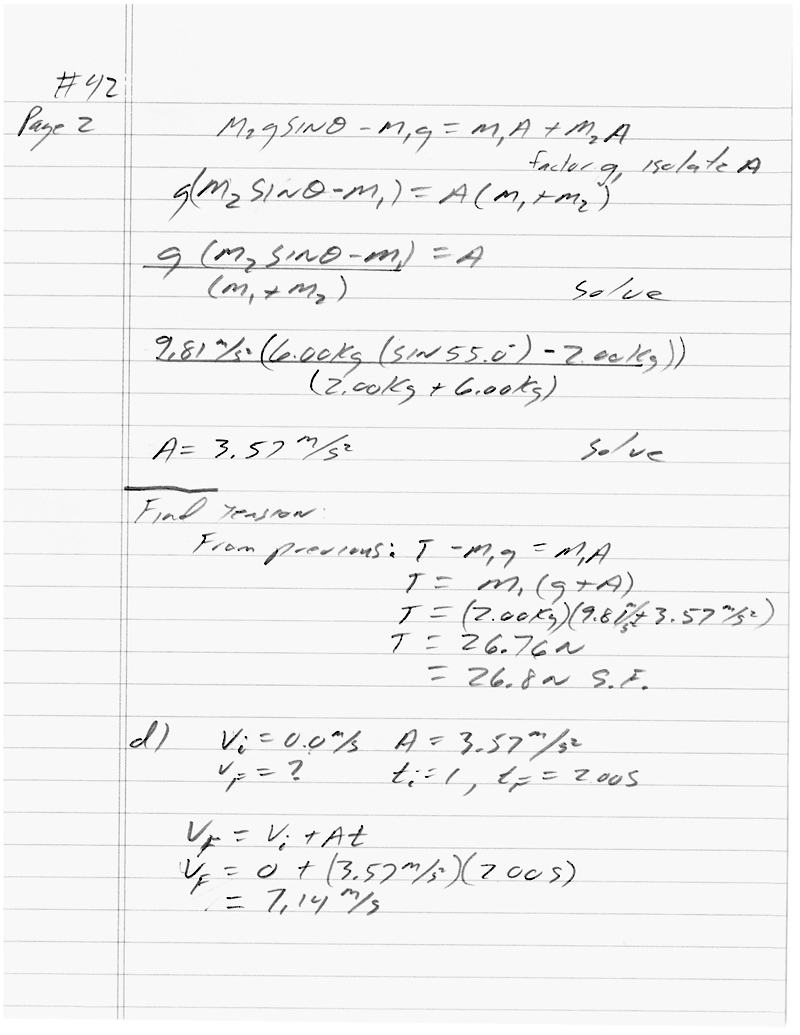 #42
Page 2
M₂gsinθ - m₁g = m₁A + m₂A
factor g, isolate A
g(m₂sinθ - m₁) = A(m₁ + m₂)
g (m₂sinθ - m₁) = A
(m₁ + m₂)
Solve
9.81 m/s² (6.00kg (sin 55.0°) - 2.00kg))
(2.00kg + 6.00kg)
A = 3.57 m/s²
Solve
Find Tension:
From previous: T - m₁g = m₁A
T = m₁(g + A)
T = (2.00kg)(9.81 m/s² + 3.57 m/s²)
T = 26.76N
= 26.8N S.F.
d) Vi = 0.0 m/s A = 3.57 m/s²
VF = ? ti = 1, tF = 2.00s
VF = Vi + At
VF = 0 + (3.57 m/s²)(2.00s)
= 7.14 m/s